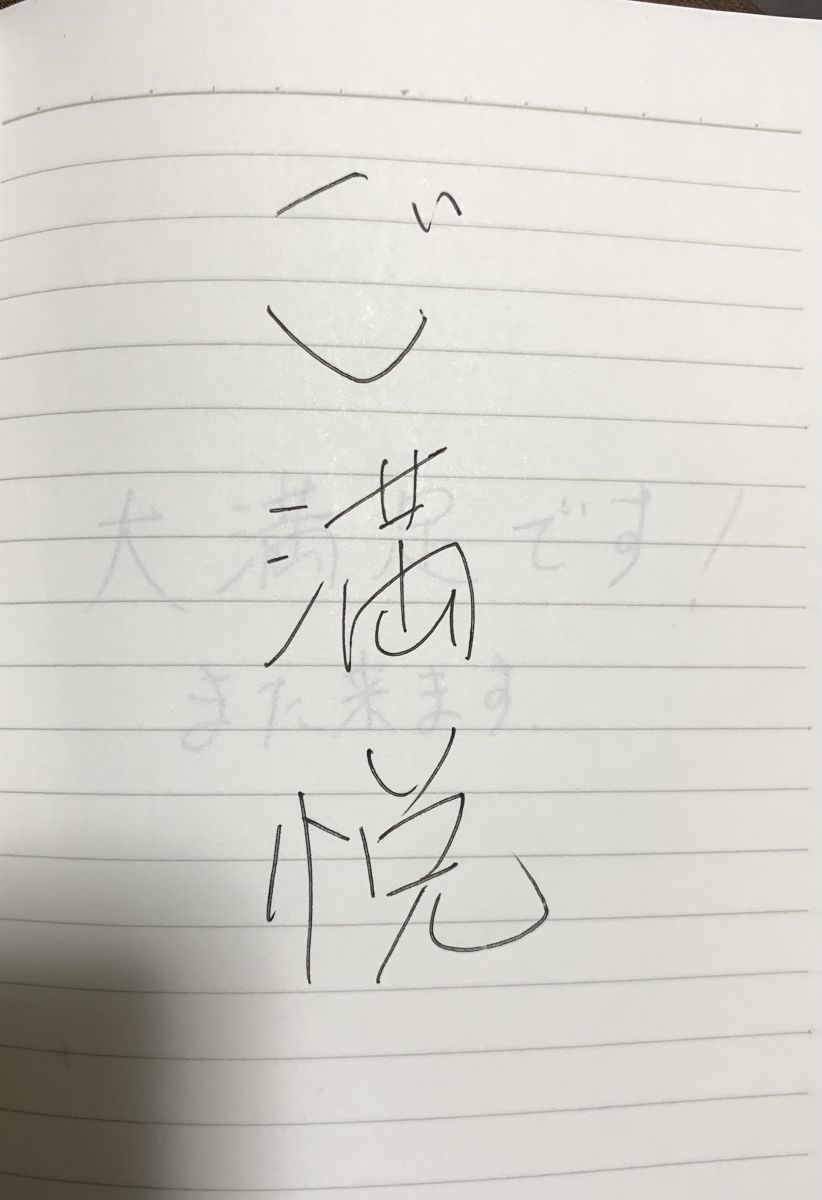 ご
満
悦
大満足です!
また来ます